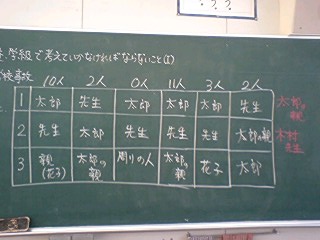 学級で考えていかなければならないこと(1)
校事故
10人 2人 0人 11人 3人 2人
1 太郎 先生 太郎 太郎 太郎 先生 太郎の親
2 先生 太郎 先生 先生 先生 太郎の親 木村先生
3 親(花子) 太郎の親 周りの人 太郎の親 花子 太郎